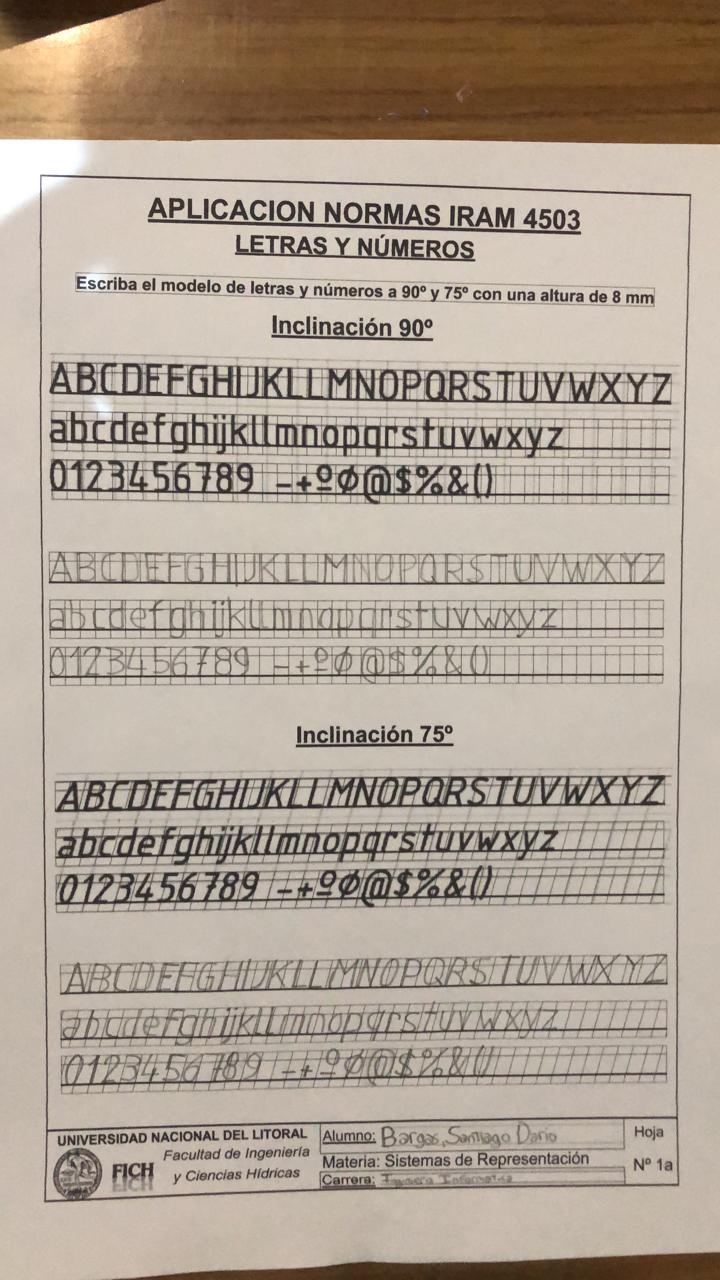 APLICACION NORMAS IRAM 4503
LETRAS Y NÚMEROS
Escriba el modelo de letras y números a 90º y 75º con una altura de 8 mm
Inclinación 90º
ABCDEFGHIJKLLMNOPQRSTUVWXYZ
abcdefghijkllmnopqrstuvwxyz
0123456789 -+ºØ@$%&()
ABCDEFGHIJKLLMNOPQRSTUVWXYZ
abcdefghijkllmnopqrstuvwxyz
0123456789 -+ºØ@$%&()
Inclinación 75º
ABCDEFGHIJKLLMNOPQRSTUVWXYZ
abcdefghijkllmnopqrstuvwxyz
0123456789 -+ºØ@$%&()
ABCDEFGHIJKLLMNOPQRSTUVWXYZ
abcdefghijkllmnopqrstuvwxyz
0123456789 -+ºØ@$%&()
UNIVERSIDAD NACIONAL DEL LITORAL
FICH
Facultad de Ingeniería
y Ciencias Hídricas
Alumno: Bargas, Santiago Dario
Materia: Sistemas de Representación
Carrera:
Hoja
Nº 1a